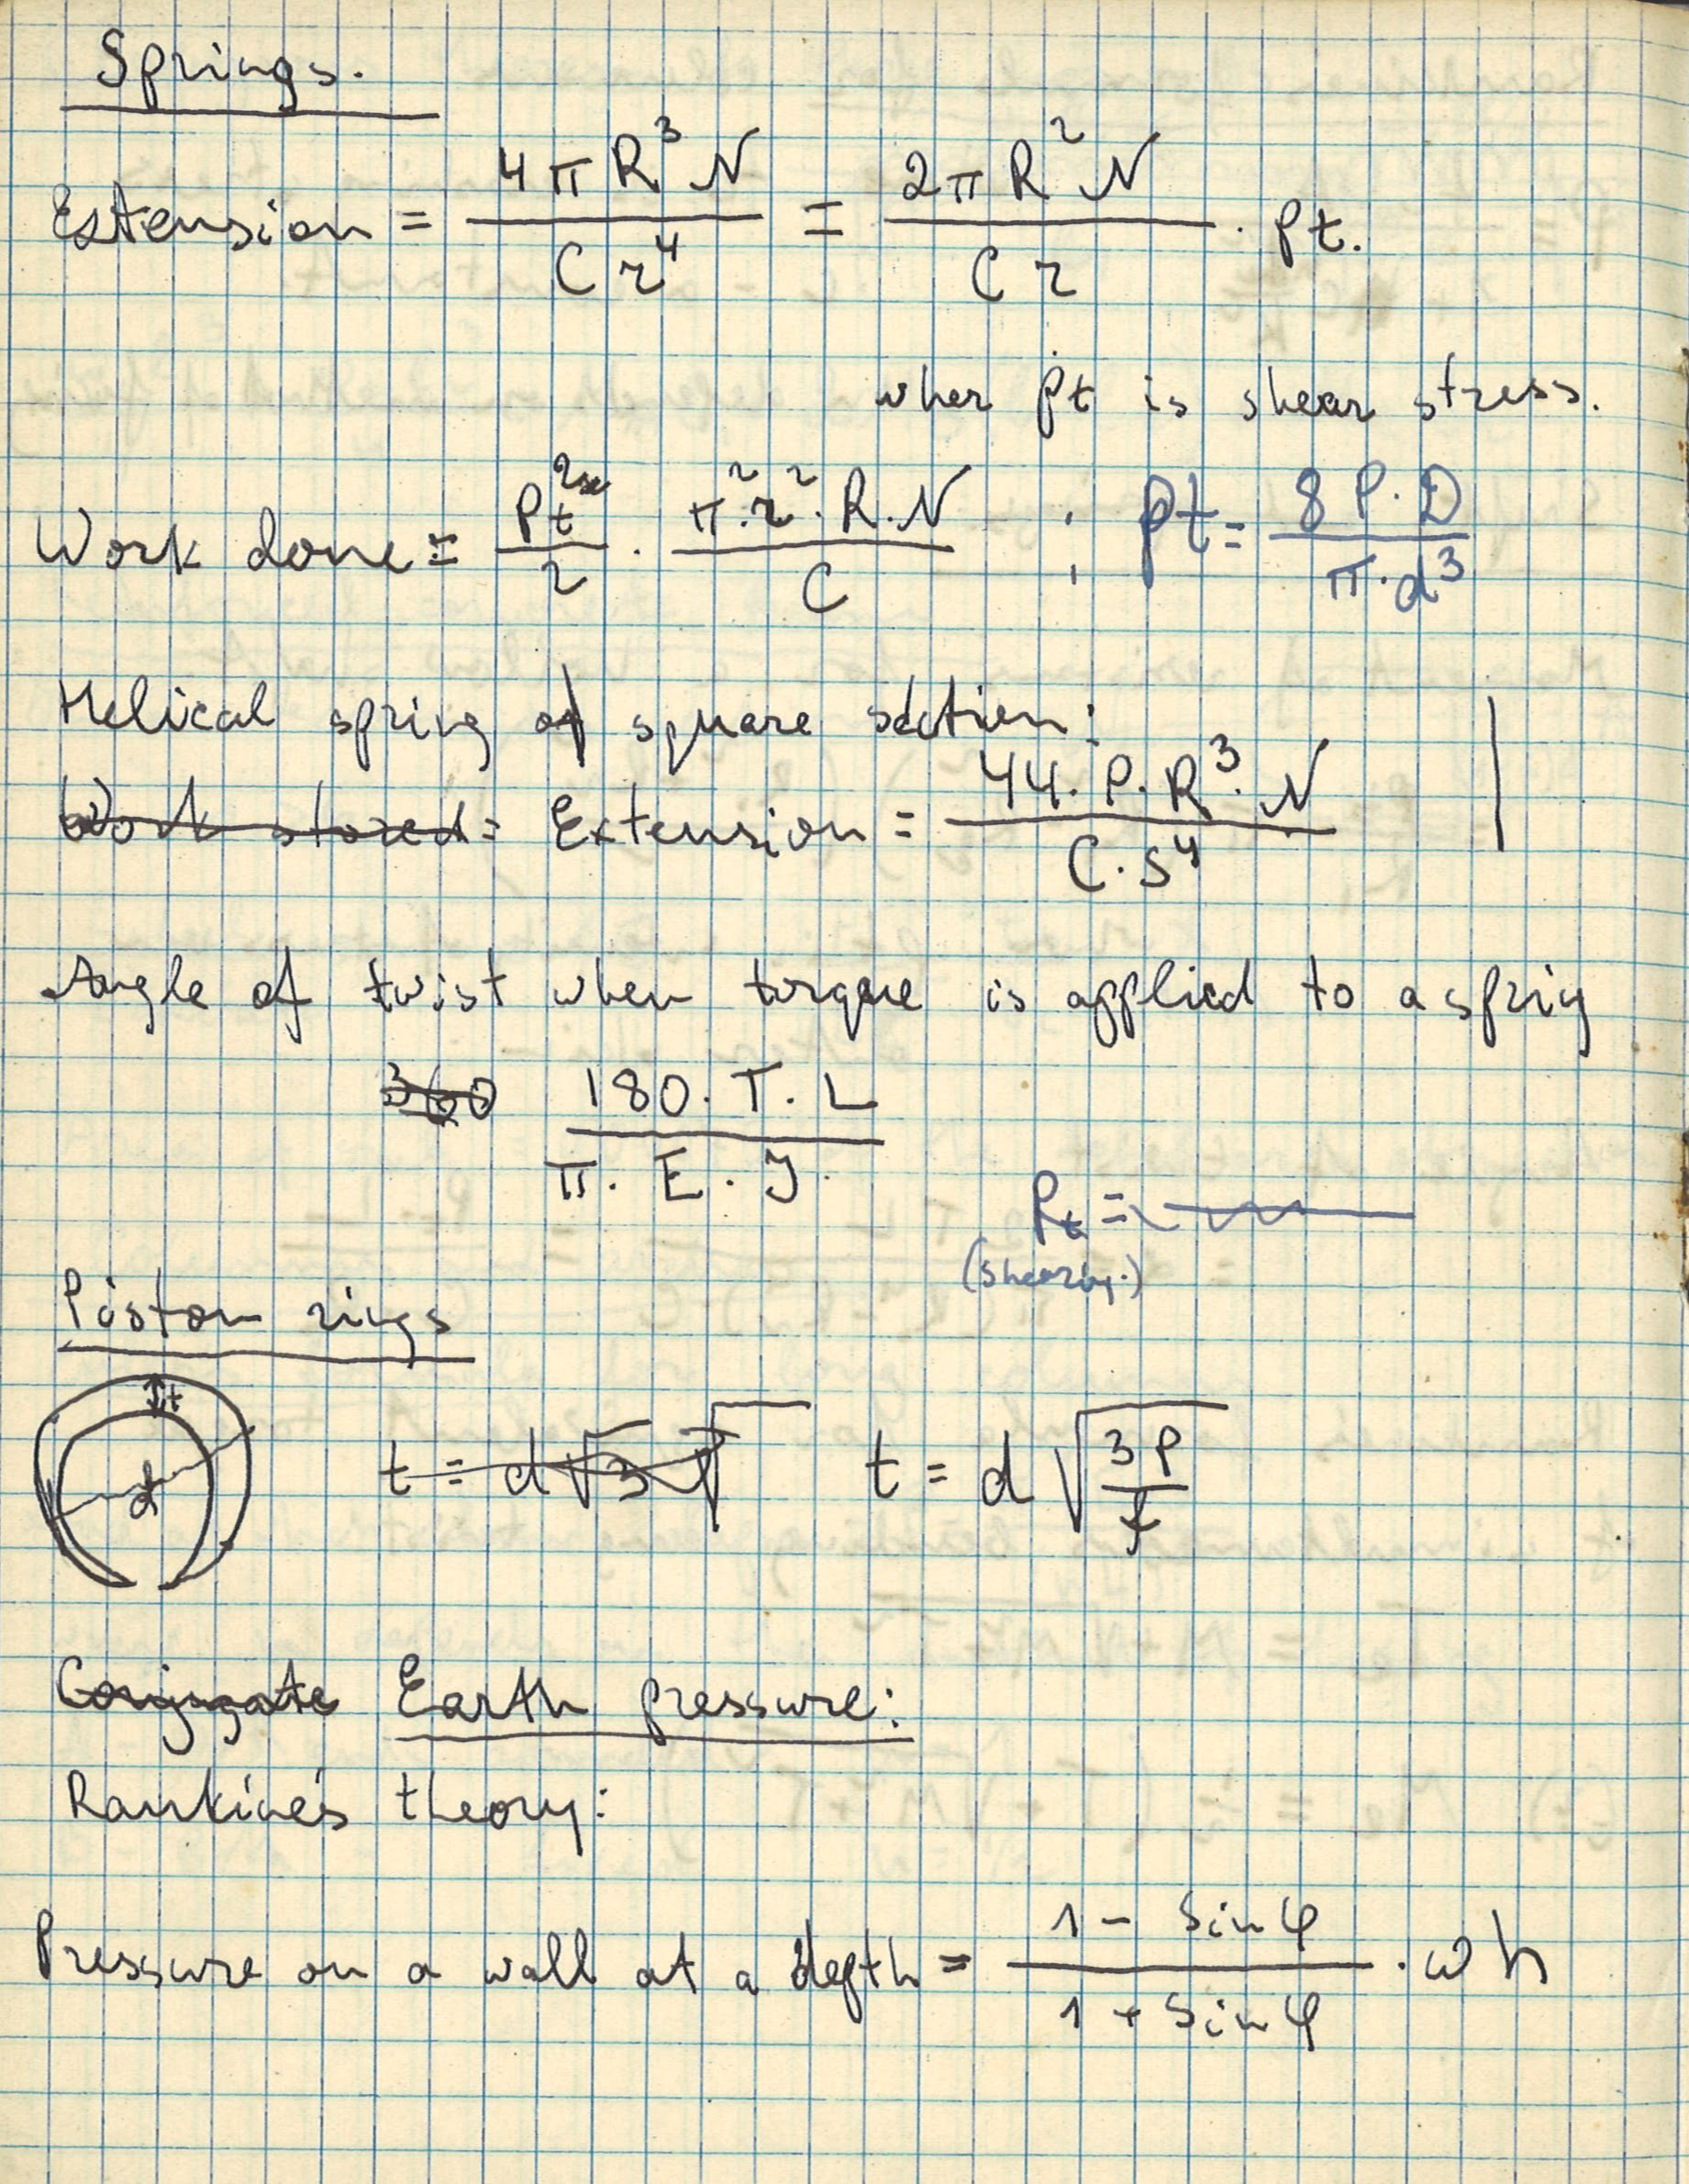 Springs.
Extension = 4πR³N / Cr⁴ = 2πR²N / Cr · pt.
wher pt is shear stress.
Work done = Pt² / 2 · π².r².R.N / C ; pt = 8P.D / π.d³
Helical spring of square section:
Work stored = Extension = 44.P.R³.N / C.S⁴
Angle of twist when torque is applied to a sprig
360 180.T.L / π.E.J.
Pt =
(shearing.)
Piston rings
t
d
t = d√3 t = d√(3P / f)
Conjugate Earth pressure:
Rankine's theory:
Pressure on a wall at a depth = 1 - Sinφ / 1 + Sinφ . wh